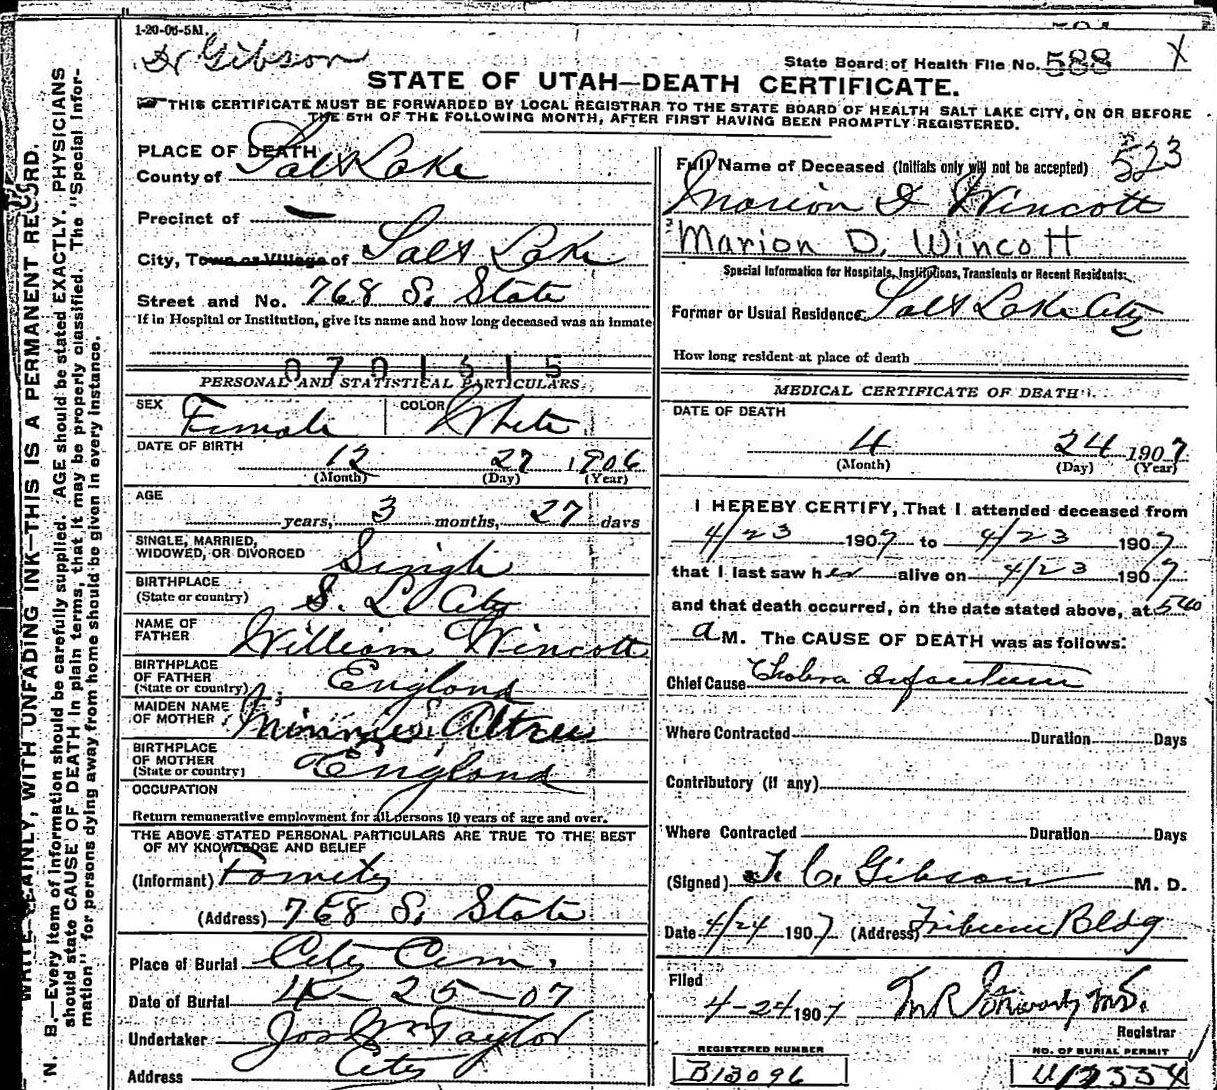 1-20-06-5M.
Dr Gibson
State Board of Health File No. 588 X
STATE OF UTAH—DEATH CERTIFICATE.
THIS CERTIFICATE MUST BE FORWARDED BY LOCAL REGISTRAR TO THE STATE BOARD OF HEALTH SALT LAKE CITY, ON OR BEFORE
THE 5TH OF THE FOLLOWING MONTH, AFTER FIRST HAVING BEEN PROMPTLY REGISTERED.
PLACE OF DEATH
County of Salt Lake
Precinct of —
City, Town or Village of Salt Lake
Street and No. 768 S. State
If in Hospital or Institution, give its name and how long deceased was an inmate
0701515
PERSONAL AND STATISTICAL PARTICULARS
SEX Female COLOR White
DATE OF BIRTH
12 27 1906
(Month) (Day) (Year)
AGE
years, 3 months, 27 days
SINGLE, MARRIED,
WIDOWED, OR DIVORCED Single
BIRTHPLACE
(State or country) S. L. City
NAME OF
FATHER William Wincott
BIRTHPLACE
OF FATHER
(State or country) England
MAIDEN NAME
OF MOTHER Minnie
BIRTHPLACE
OF MOTHER
(State or country) England
OCCUPATION
Return remunerative employment for all persons 10 years of age and over.
THE ABOVE STATED PERSONAL PARTICULARS ARE TRUE TO THE BEST
OF MY KNOWLEDGE AND BELIEF
(Informant) Family
(Address) 768 S. State
Place of Burial City Cem.
Date of Burial 4-25-07
Undertaker Jos Wm Taylor
Address City
Full Name of Deceased (Initials only will not be accepted) 523
Marion D Wincott
Marion D. Wincott
Special Information for Hospitals, Institutions, Transients or Recent Residents:
Former or Usual Residence Salt Lake City
How long resident at place of death
MEDICAL CERTIFICATE OF DEATH
DATE OF DEATH
4 24 1907
(Month) (Day) (Year)
I HEREBY CERTIFY, That I attended deceased from
4/23 1907 to 4/23 1907
that I last saw her alive on 4/23 1907
and that death occurred, on the date stated above, at 540
a M. The CAUSE OF DEATH was as follows:
Chief Cause Cholera Infantum
Where Contracted Duration Days
Contributory (If any)
Where Contracted Duration Days
(Signed) T. C. Gibson M. D.
Date 4/24 1907 (Address) Tribune Bldg
Filed
4-24 1907
Registrar
REGISTERED NUMBER
B13096
NO. OF BURIAL PERMIT
N. B.—Every item of information should be carefully supplied. AGE should be stated EXACTLY. PHYSICIANS
should state CAUSE OF DEATH in plain terms, that it may be properly classified. The "Special Infor-
mation" for persons dying away from home should be given in every instance.
WRITE PLAINLY, WITH UNFADING INK—THIS IS A PERMANENT RECORD.